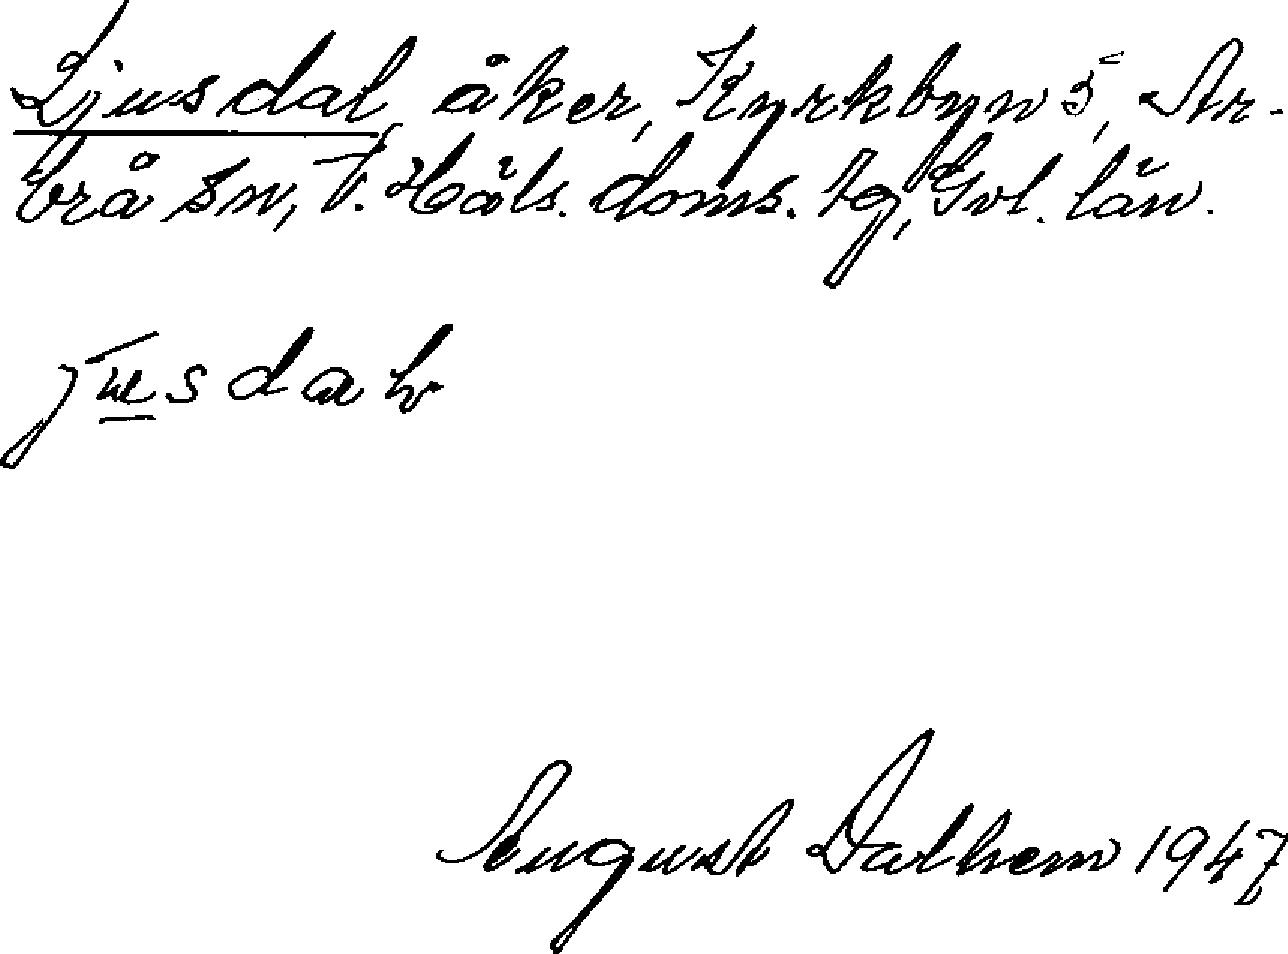 Ljusdal, åker, Kyrkbyn 5, Ar-
brå sn, V. Häls. doms. tg, Gvl. län.
August Dalhem 1947